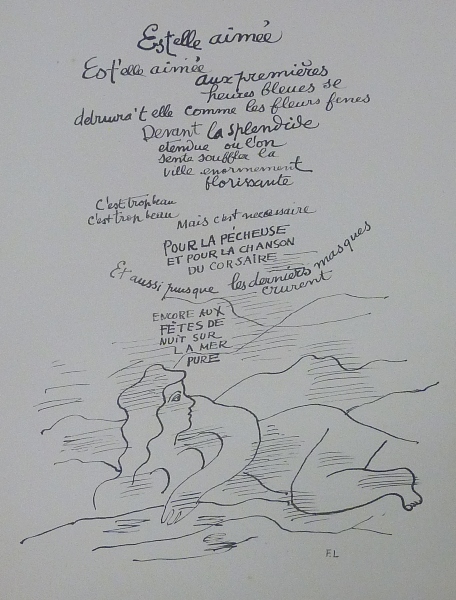 Estelle aimée
Est'elle aimée
aux premières
heures bleues se
detruira't elle comme les fleurs fenes
Devant la splendide
etendue ou l'on
sente souffler la
ville enormement
florissante
C'est trop beau
c'est trop beau
Mais c'est necessaire
POUR LA PÉCHEUSE
ET POUR LA CHANSON
DU CORSAIRE
Et aussi puisque les derniers masques
crurent
ENCORE AUX
FÊTES DE
NUIT SUR
LA MER
PURE
F.L